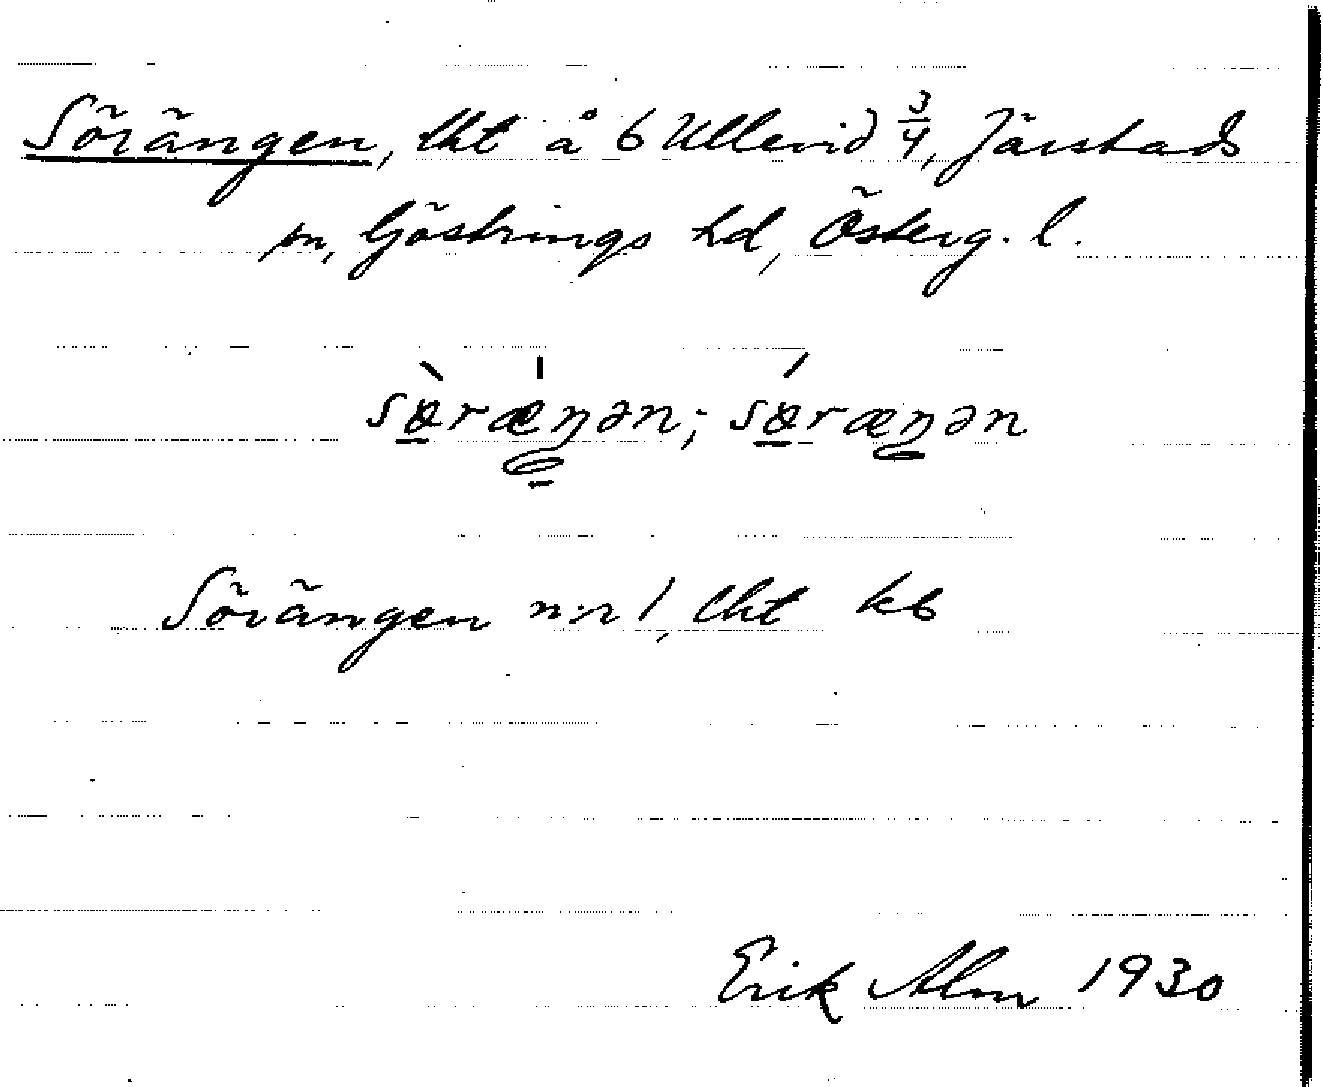 Sörängen, lht å 6 Ullevid 3/4, Järstads
sn, Göstrings hd, Österg. l.
sø̀ræ̍ŋən; sǿræŋən
Sörängen n:r 1, lht kb
Erik Alm 1930